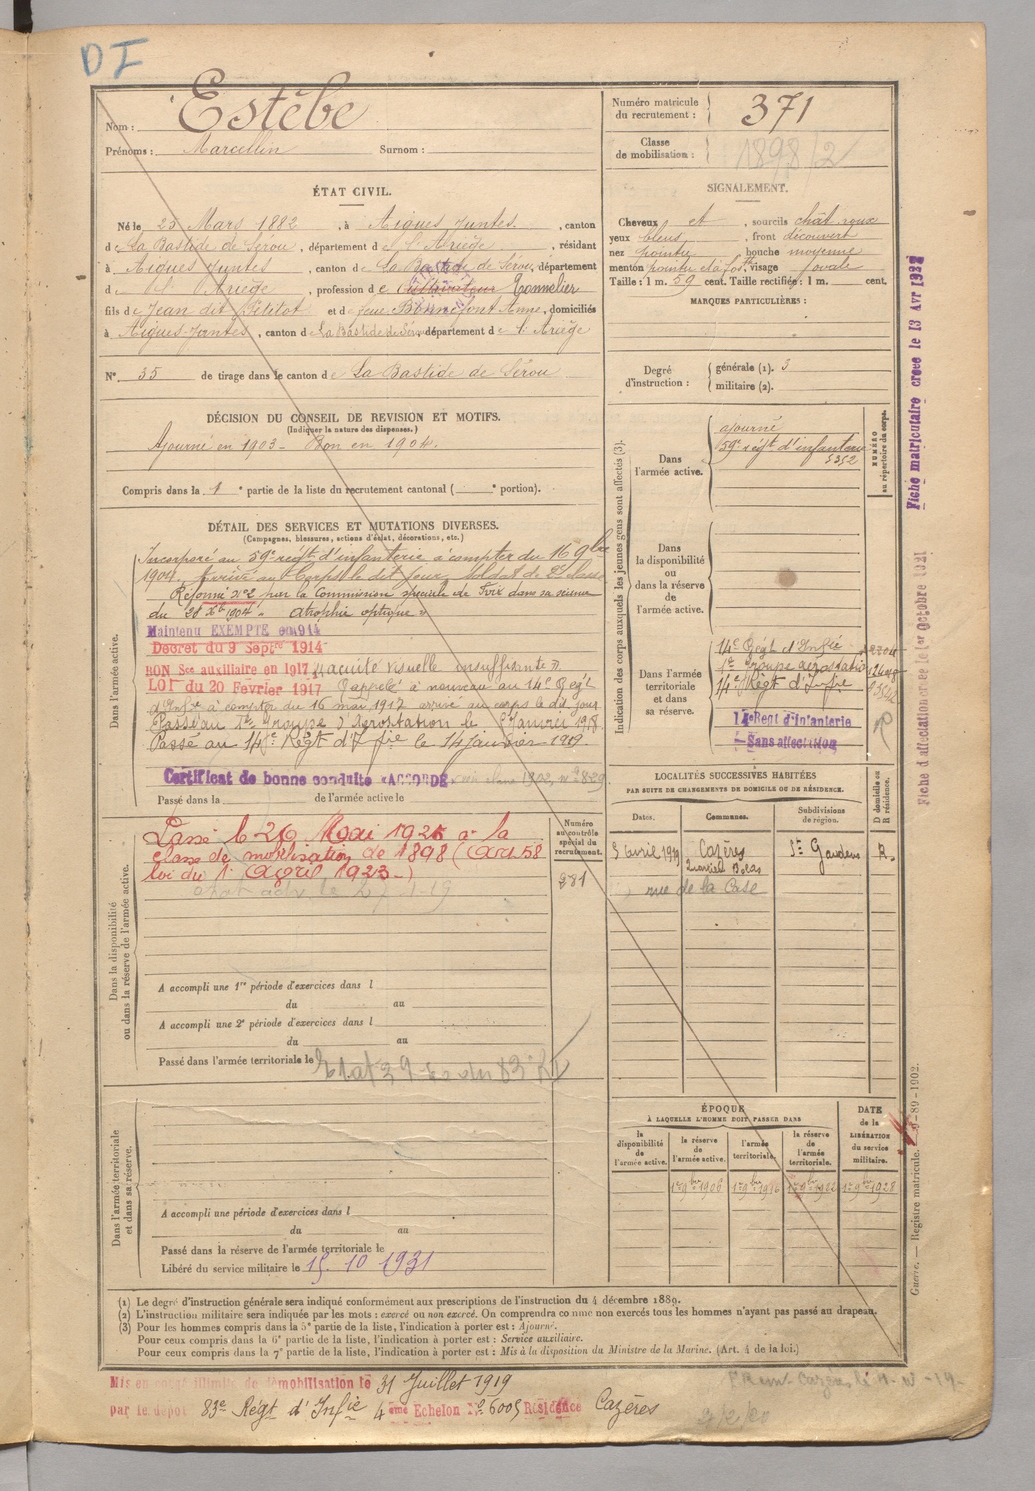 DI
Nom : Estèbe
Prénoms : Marcellin Surnom :
Numéro matricule du recrutement : 371
Classe de mobilisation : 1898/2
ÉTAT CIVIL.
Né le 25 Mars 1882, à Aigues Juntes, canton
de La Bastide de Sérou, département de l'Ariège, résidant
à Aigues Juntes, canton de La Bastide de Sérou, département
d e l'Ariège, profession de Cultivateur Tonnelier
fils de Jean dit Pétitot et de feue Bonnefont Anne, domiciliés
à Aigues-Juntes, canton de La Bastide de Sérou département de l'Ariège
N° 35 de tirage dans le canton de La Bastide de Sérou
SIGNALEMENT.
Cheveux et, sourcils chât roux
yeux bleus, front découvert
nez pointu, bouche moyenne
menton pointu et à fostte, visage ovale
Taille : 1 m. 59 cent. Taille rectifiée : 1 m. cent.
MARQUES PARTICULIÈRES :
Degré d'instruction : générale (1). 3
militaire (2).
DÉCISION DU CONSEIL DE REVISION ET MOTIFS.
(Indiquer la nature des dispenses.)
Ajourné en 1903 - Bon en 1904.
Compris dans la 1e partie de la liste du recrutement cantonal ( e portion).
DÉTAIL DES SERVICES ET MUTATIONS DIVERSES.
(Campagnes, blessures, actions d'éclat, décorations, etc.)
Dans l'armée active.
Incorporé au 59e régt d'infanterie à compter du 16 9bre
1904. Arrivé au Corps le dit jour, Soldat de 2e classe
Réformé n°2 par la Commission spéciale de Foix dans sa séance
du 28 Xbre 1904 « atrophie optique »
Maintenu EXEMPTE en 1914
Decret du 9 Septre 1914
BON Sce auxiliaire en 1917 « acuité visuelle insuffisante ».
LOI du 20 Février 1917 Rappelé à nouveau au 14e Régt
d'Infie à compter du 16 mai 1917 arrivé au corps le dit jour
Passé au 1er Groupe d'Aérostation le Janvier 1918
Passé au 14e Régt d'Infie le 14 janvier 1919.
Certificat de bonne conduite « ACCORDÉ
Passé dans la de l'armée active le
Dans la disponibilité ou dans la réserve de l'armée active.
Passé le 26 Mai 1925 à la
classe de mobilisation de 1898 (Art 58
loi du 1er Avril 1923.)
Numéro au contrôle spécial du recrutement.
281
A accompli une 1re période d'exercices dans l
du au
A accompli une 2e période d'exercices dans l
du au
Passé dans l'armée territoriale le
Dans l'armée territoriale et dans sa réserve.
A accompli une période d'exercices dans l
du au
Passé dans la réserve de l'armée territoriale le
Libéré du service militaire le 15. 10 1931
Indication des corps auxquels les jeunes gens sont affectés (3).
NUMÉRO au répertoire du corps.
Dans l'armée active.
ajourné
59e régt d'infanterie
5352
Dans la disponibilité ou dans la réserve de l'armée active.
Dans l'armée territoriale et dans sa réserve.
14e Régt d'Infie
1er groupe aérostation
14e Régt d'Infie
14e Regt d'infanterie
Sans affectation
R
LOCALITÉS SUCCESSIVES HABITÉES
PAR SUITE DE CHANGEMENTS DE DOMICILE OU DE RÉSIDENCE.
Dates. Communes. Subdivisions de région. D domicile ou R résidence.
5 Avril 1919 Cazères St Gaudens R.
rue de la Case
ÉPOQUE
À LAQUELLE L'HOMME DOIT PASSER DANS
la disponibilité de l'armée active. la réserve de l'armée active. l'armée territoriale. la réserve de l'armée territoriale. DATE de la LIBÉRATION du service militaire.
1er 9bre 1906 1er 9bre 1916 1er 9bre 1922 1er 9bre 1928
Fiche matriculaire créée le 13 Avr 1932
Fiche d'affectation créée le 1er Octobre 1921
Guerre. — Registre matricule. -89-1902.
(1) Le degré d'instruction générale sera indiqué conformément aux prescriptions de l'instruction du 4 décembre 1889.
(2) L'instruction militaire sera indiquée par les mots : exercé ou non exercé. On comprendra comme non exercés tous les hommes n'ayant pas passé au drapeau.
(3) Pour les hommes compris dans la 5e partie de la liste, l'indication à porter est : Ajourné.
Pour ceux compris dans la 6e partie de la liste, l'indication à porter est : Service auxiliaire.
Pour ceux compris dans la 7e partie de la liste, l'indication à porter est : Mis à la disposition du Ministre de la Marine. (Art. 4 de la loi.)
Mis en congé illimité de démobilisation le 31 Juillet 1919
par le dépôt 83e Régt d'Infie 4ème Echelon No 6005 Résidence Cazères